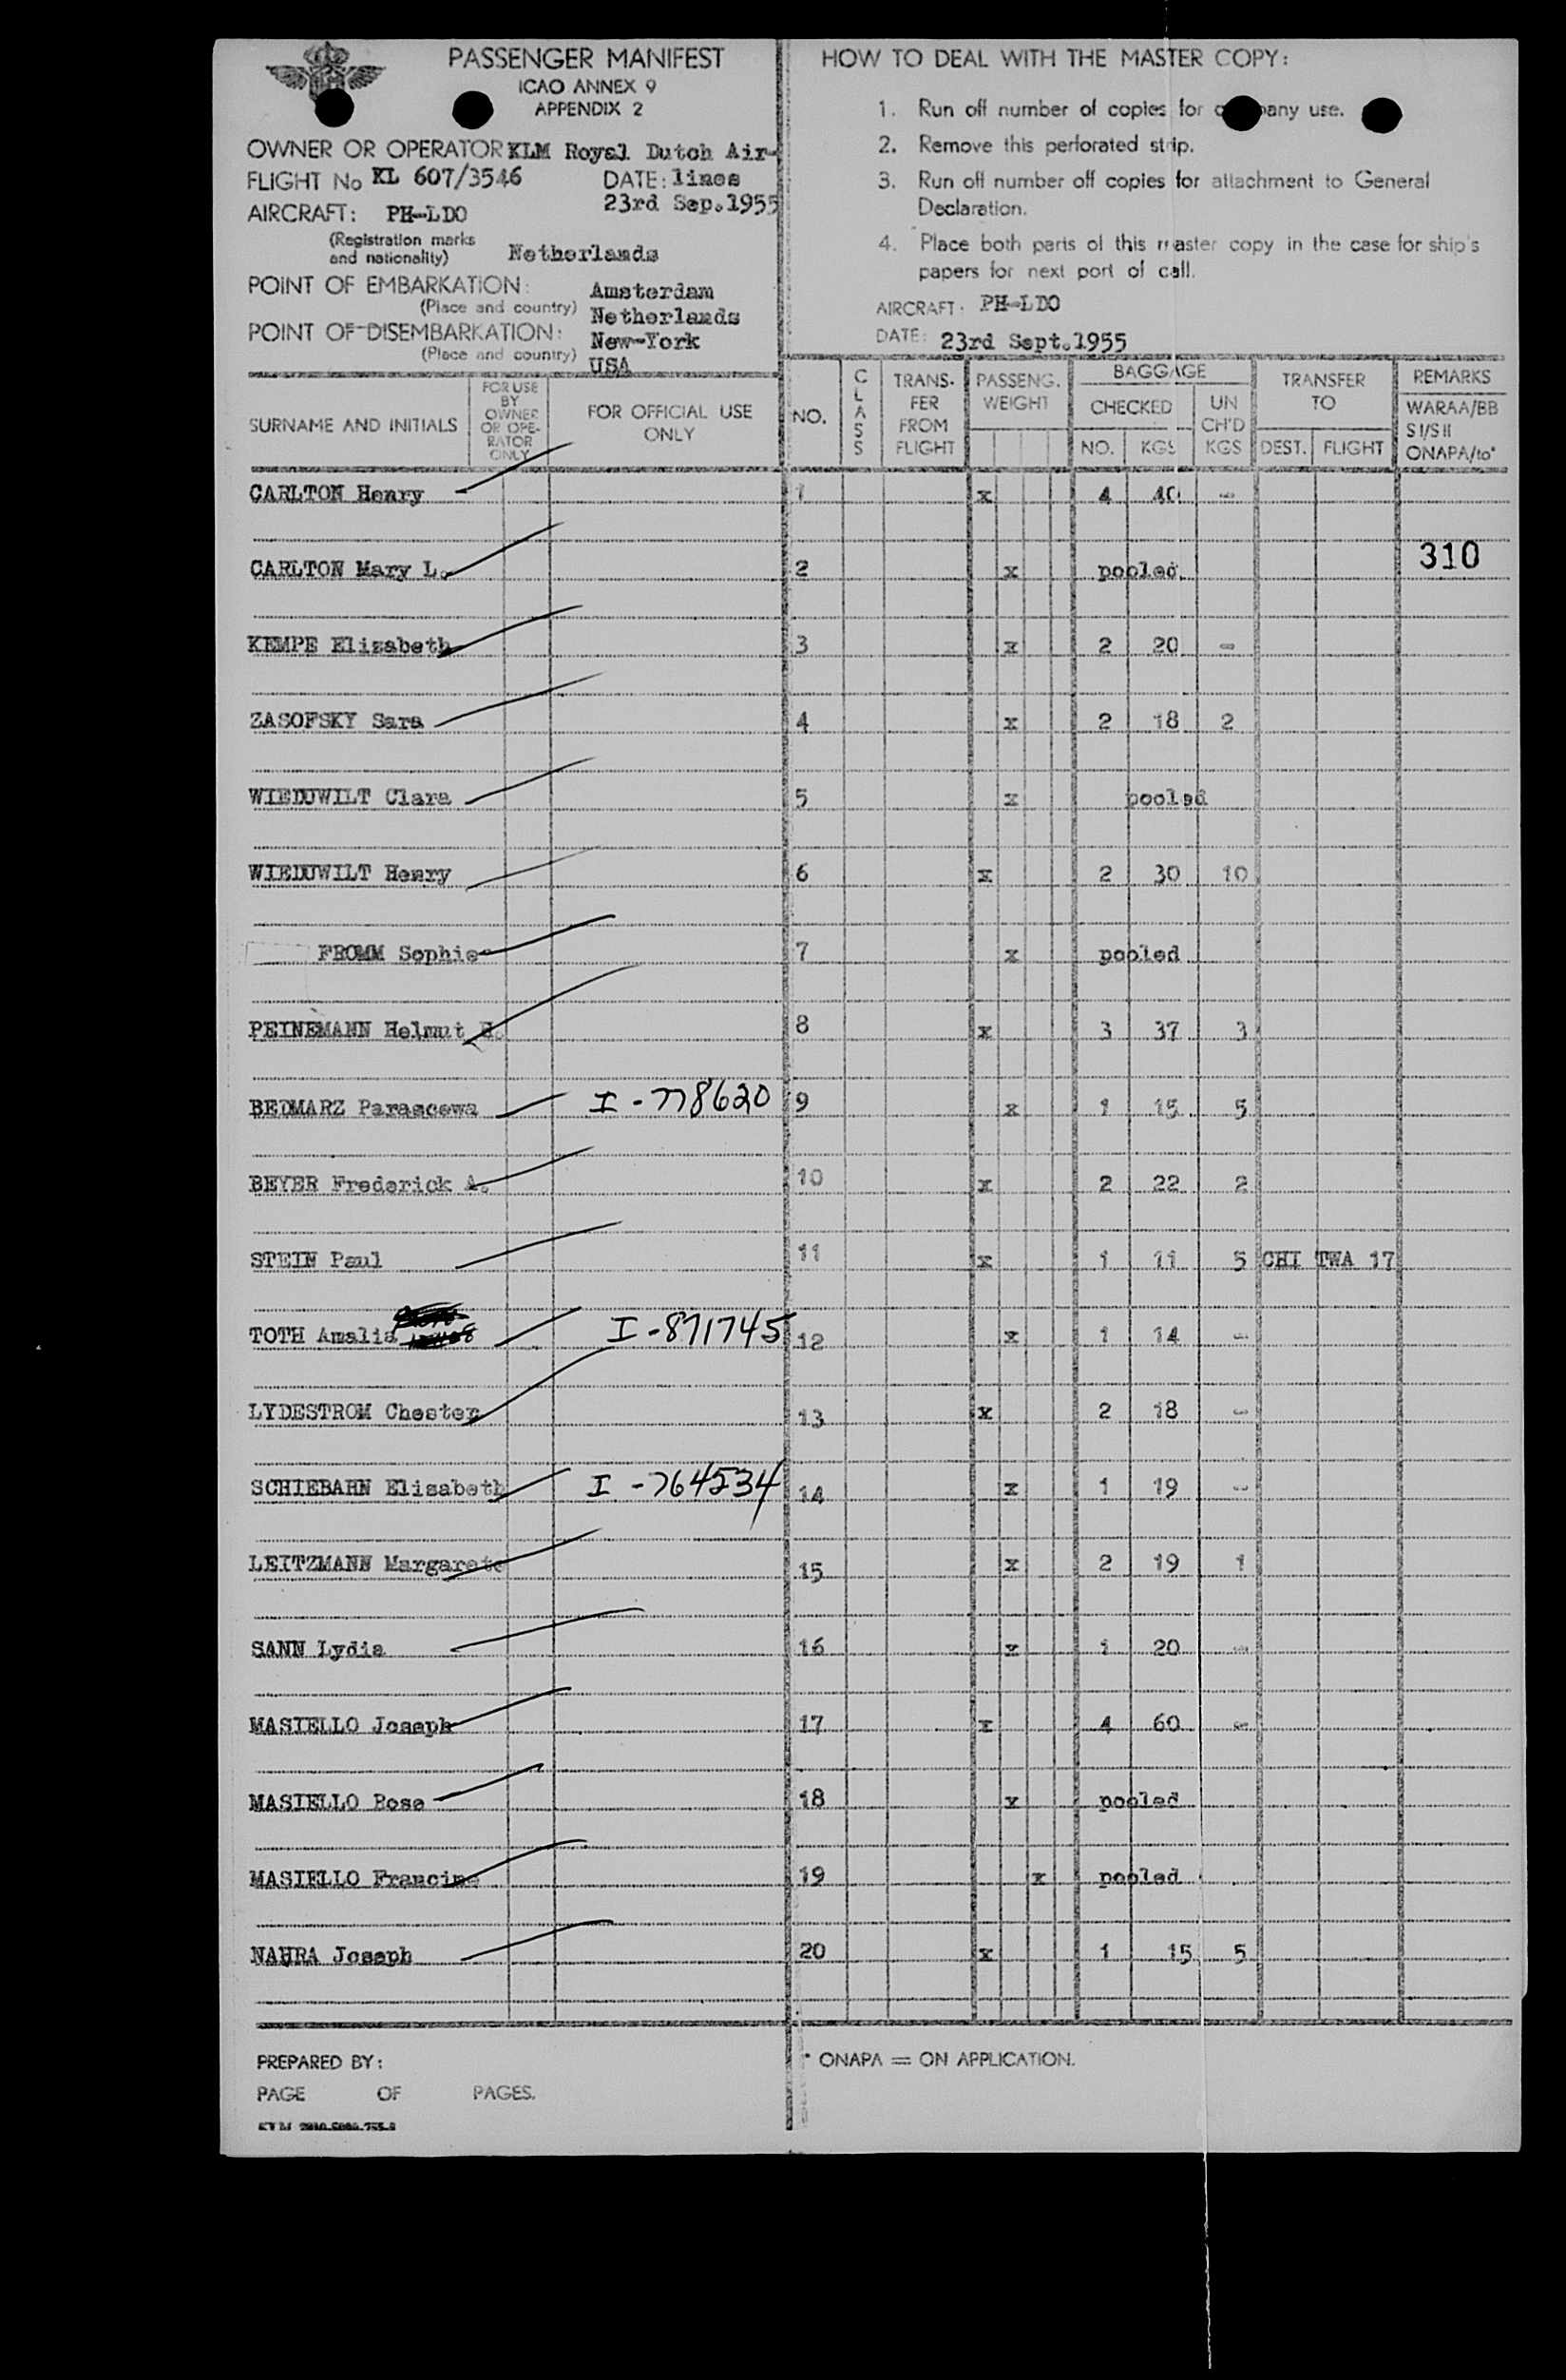 PASSENGER MANIFEST
ICAO ANNEX 9
APPENDIX 2
OWNER OR OPERATOR KLM Royal Dutch Air-
FLIGHT No KL 607/3546 DATE: lines
23rd Sep.1955
AIRCRAFT: PH-LDO
(Registration marks
and nationality) Netherlands
POINT OF EMBARKATION: Amsterdam
(Place and country) Netherlands
POINT OF DISEMBARKATION: New-York
(Place and country) USA
HOW TO DEAL WITH THE MASTER COPY:
1. Run off number of copies for company use.
2. Remove this perforated strip.
3. Run off number off copies for attachment to General
Declaration.
4. Place both parts of this master copy in the case for ship's
papers for next port of call.
AIRCRAFT: PH-LDO
DATE: 23rd Sept.1955
SURNAME AND INITIALS FOR USE BY OWNER OR OPE- RATOR ONLY FOR OFFICIAL USE ONLY NO. CLASS TRANS- FER FROM FLIGHT PASSENG. WEIGHT BAGGAGE CHECKED NO. KGS UN CH'D KGS TRANSFER TO DEST. FLIGHT REMARKS WARAA/BB SI/SII ONAPA/to*
CARLTON Henry 1 x 4 40 -
310
CARLTON Mary L. 2 x pooled
KEMPE Elizabeth 3 x 2 20 -
ZASOFSKY Sara 4 x 2 18 2
WIEDUWILT Clara 5 x pooled
WIEDUWILT Henry 6 x 2 30 10
FROMM Sophie 7 x pooled
PEINEMANN Helmut H. 8 x 3 37 3
BEDMARZ Parascewa I-778620 9 x 1 15 5
BEYER Frederick A. 10 x 2 22 2
STEIN Paul 11 x 1 11 5 CHI TWA 17
TOTH Amalia I-871745 12 x 1 14 -
LYDESTROM Chester 13 x 2 18 -
SCHIEBAHN Elisabeth I-764534 14 x 1 19 -
LEITZMANN Margarete 15 x 2 19 1
SANN Lydia 16 x 1 20 -
MASIELLO Joseph 17 x 4 60 -
MASIELLO Rose 18 x pooled
MASIELLO Francine 19 x pooled
NAHRA Joseph 20 x 1 15 5
PREPARED BY:
PAGE OF PAGES.
* ONAPA = ON APPLICATION.